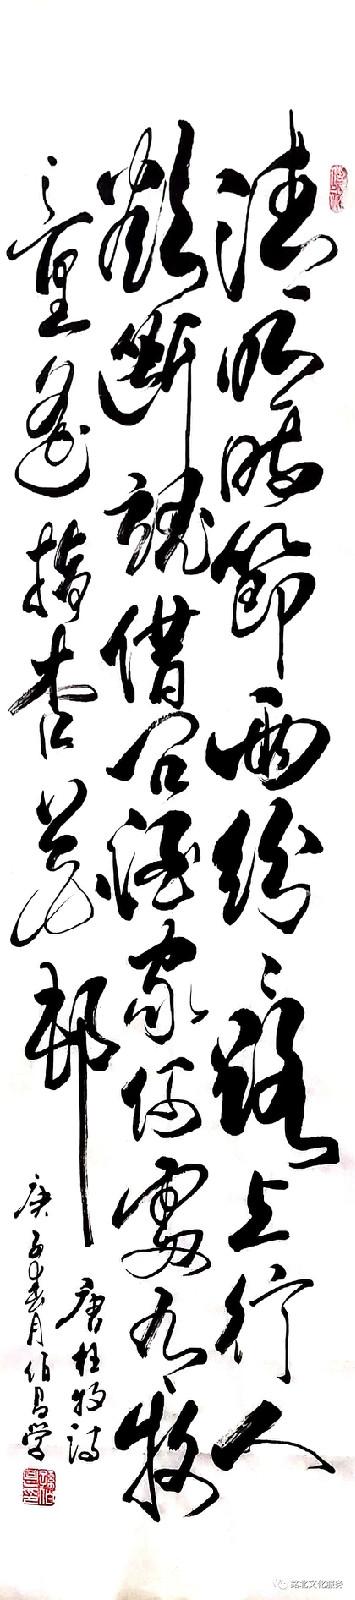 清明時節雨紛〻路上行人
欲断魂借问酒家何處有牧
童遥指杏花邨
唐杜牧诗
庚子春月伯昌学
北文化服务